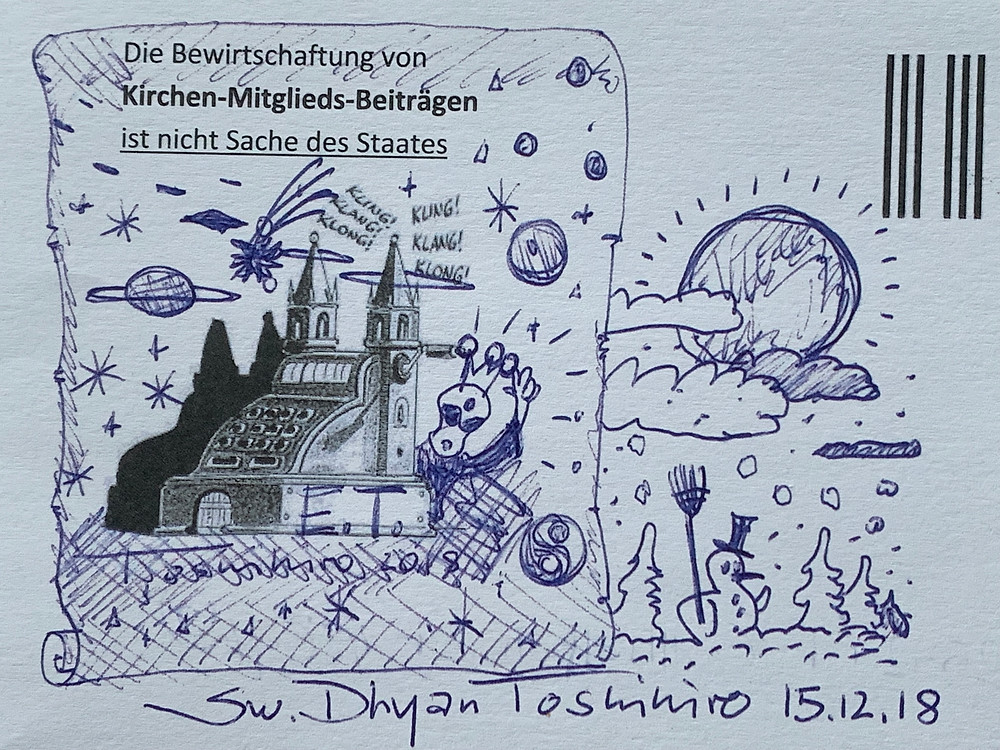 Die Bewirtschaftung von
Kirchen-Mitglieds-Beiträgen
ist nicht Sache des Staates
KLING!
KLANG!
KLONG!
KLING!
KLANG!
KLONG!
E.T.
Sw. Dhyan Toshihiro 15.12.18